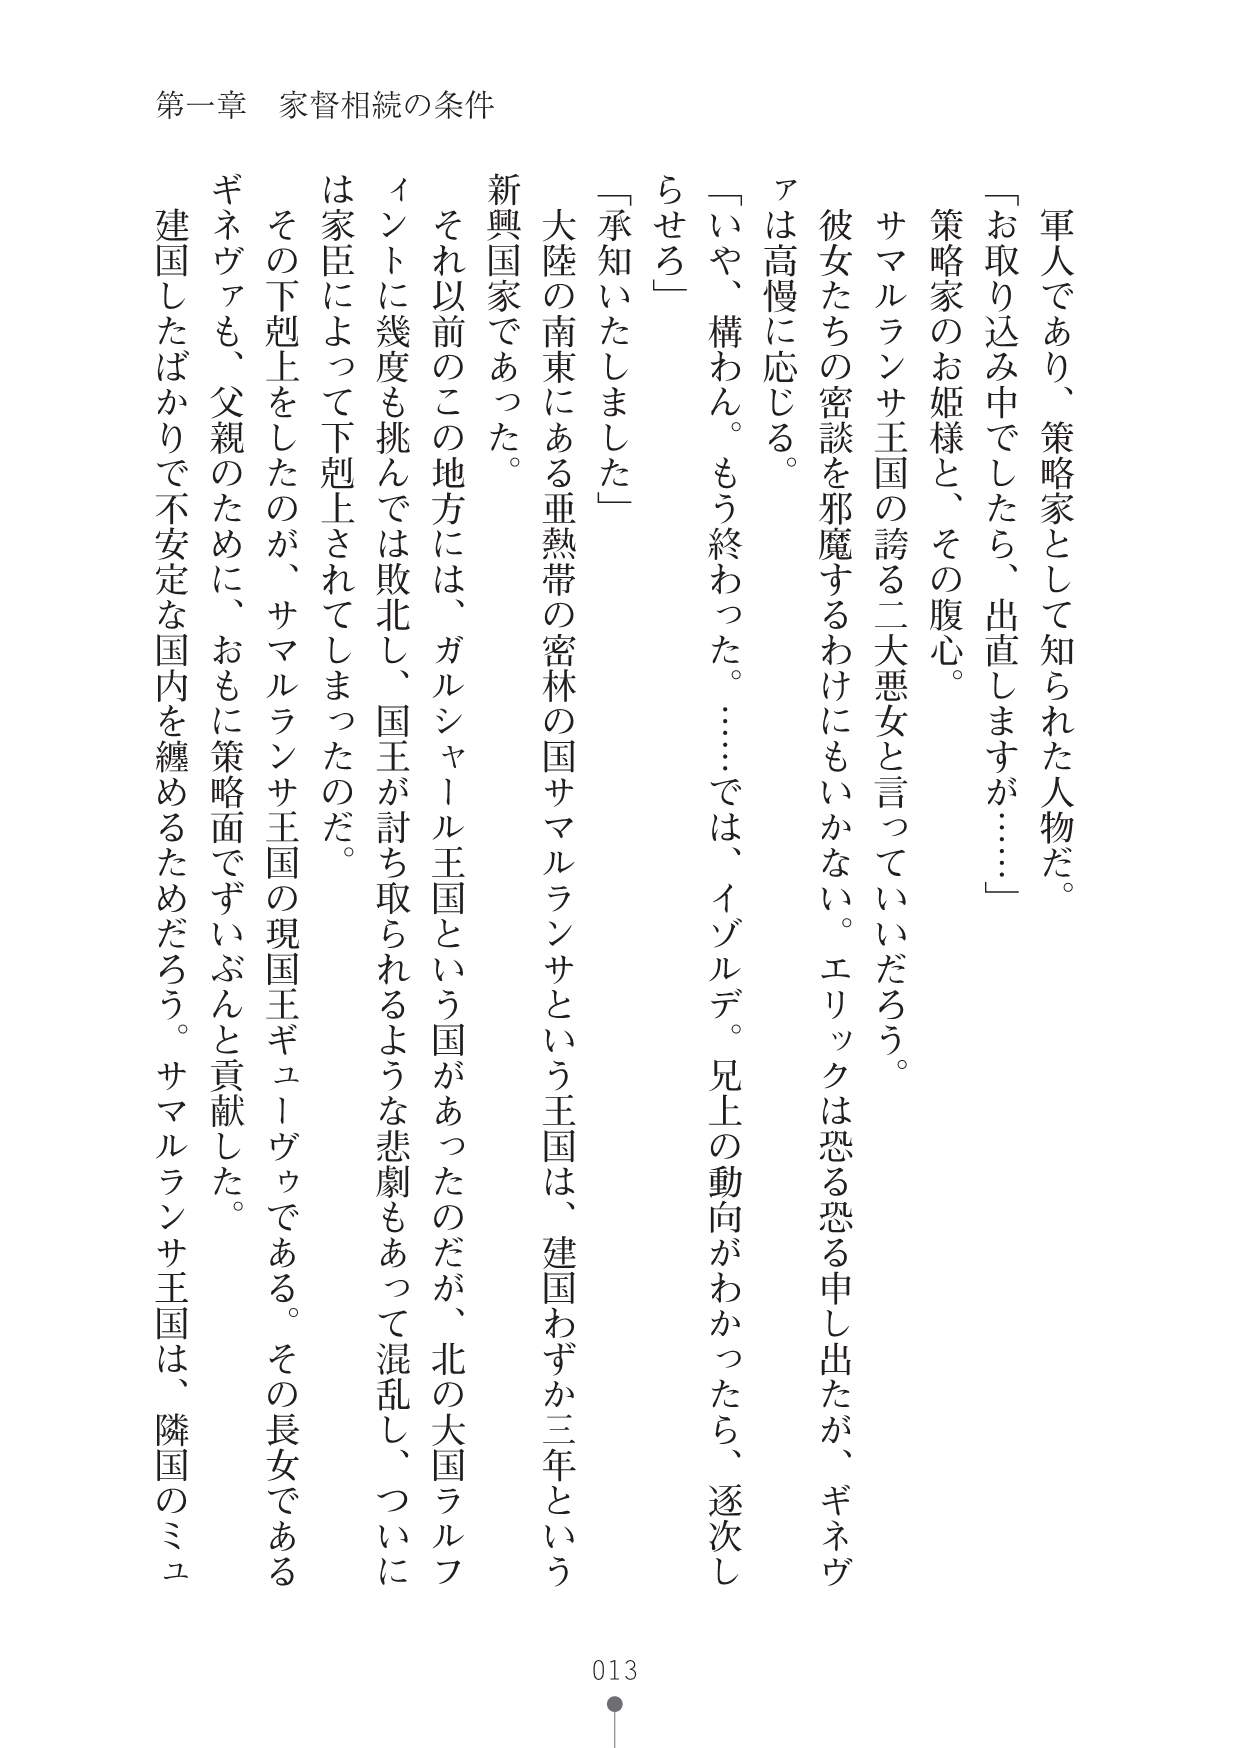 第一章　家督相続の条件
軍人であり、策略家として知られた人物だ。
「お取り込み中でしたら、出直しますが……」
策略家のお姫様と、その腹心。
サマルランサ王国の誇る二大悪女と言っていいだろう。
彼女たちの密談を邪魔するわけにもいかない。エリックは恐る恐る申し出たが、ギネヴ
ァは高慢に応じる。
「いや、構わん。もう終わった。……では、イゾルデ。兄上の動向がわかったら、逐次し
らせろ」
「承知いたしました」
大陸の南東にある亜熱帯の密林の国サマルランサという王国は、建国わずか三年という
新興国家であった。
それ以前のこの地方には、ガルシャール王国という国があったのだが、北の大国ラルフ
ィントに幾度も挑んでは敗北し、国王が討ち取られるような悲劇もあって混乱し、ついに
は家臣によって下剋上されてしまったのだ。
その下剋上をしたのが、サマルランサ王国の現国王ギューヴゥである。その長女である
ギネヴァも、父親のために、おもに策略面でずいぶんと貢献した。
建国したばかりで不安定な国内を纏めるためだろう。サマルランサ王国は、隣国のミュ
013